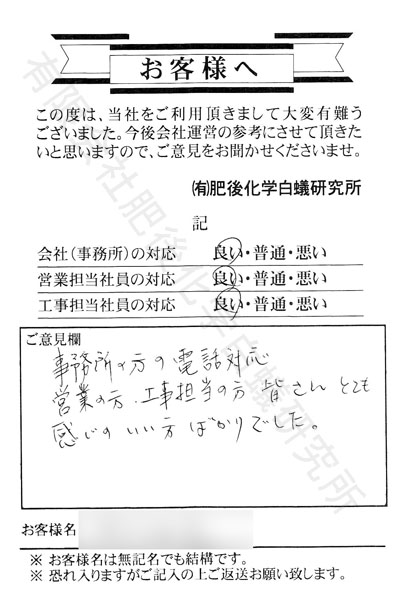 お客様へ
この度は、当社をご利用頂きまして大変有難う
ございました。今後会社運営の参考にさせて頂きた
いと思いますので、ご意見をお聞かせくださいませ。
㈲肥後化学白蟻研究所
記
会社(事務所)の対応 良い・普通・悪い
営業担当社員の対応 良い・普通・悪い
工事担当社員の対応 良い・普通・悪い
ご意見欄
事務所の方の電話対応
営業の方、工事担当の方 皆さんとても
感じのいい方ばかりでした。
お客様名
※ お客様名は無記名でも結構です。
※ 恐れ入りますがご記入の上ご返送お願い致します。
有限会社肥後化学白蟻研究所